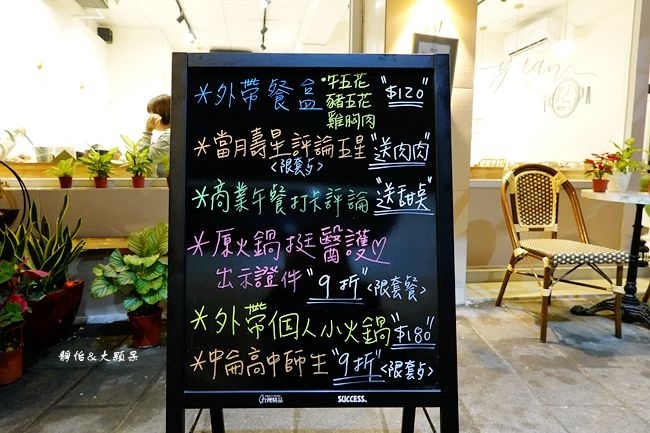 *外帶餐盒 •牛五花 "$120"
豬五花
雞胸肉
*當月壽星評論五星"送肉肉"
<限套餐>
*商業午餐打卡評論"送甜點"
*原火鍋挺醫護♡
出示證件"9折"<限套餐>
*外帶個人小火鍋"$180"
*中崙高中師生"9折"<限套餐>
台灣精品 SUCCESS.
靜怡&大顆呆